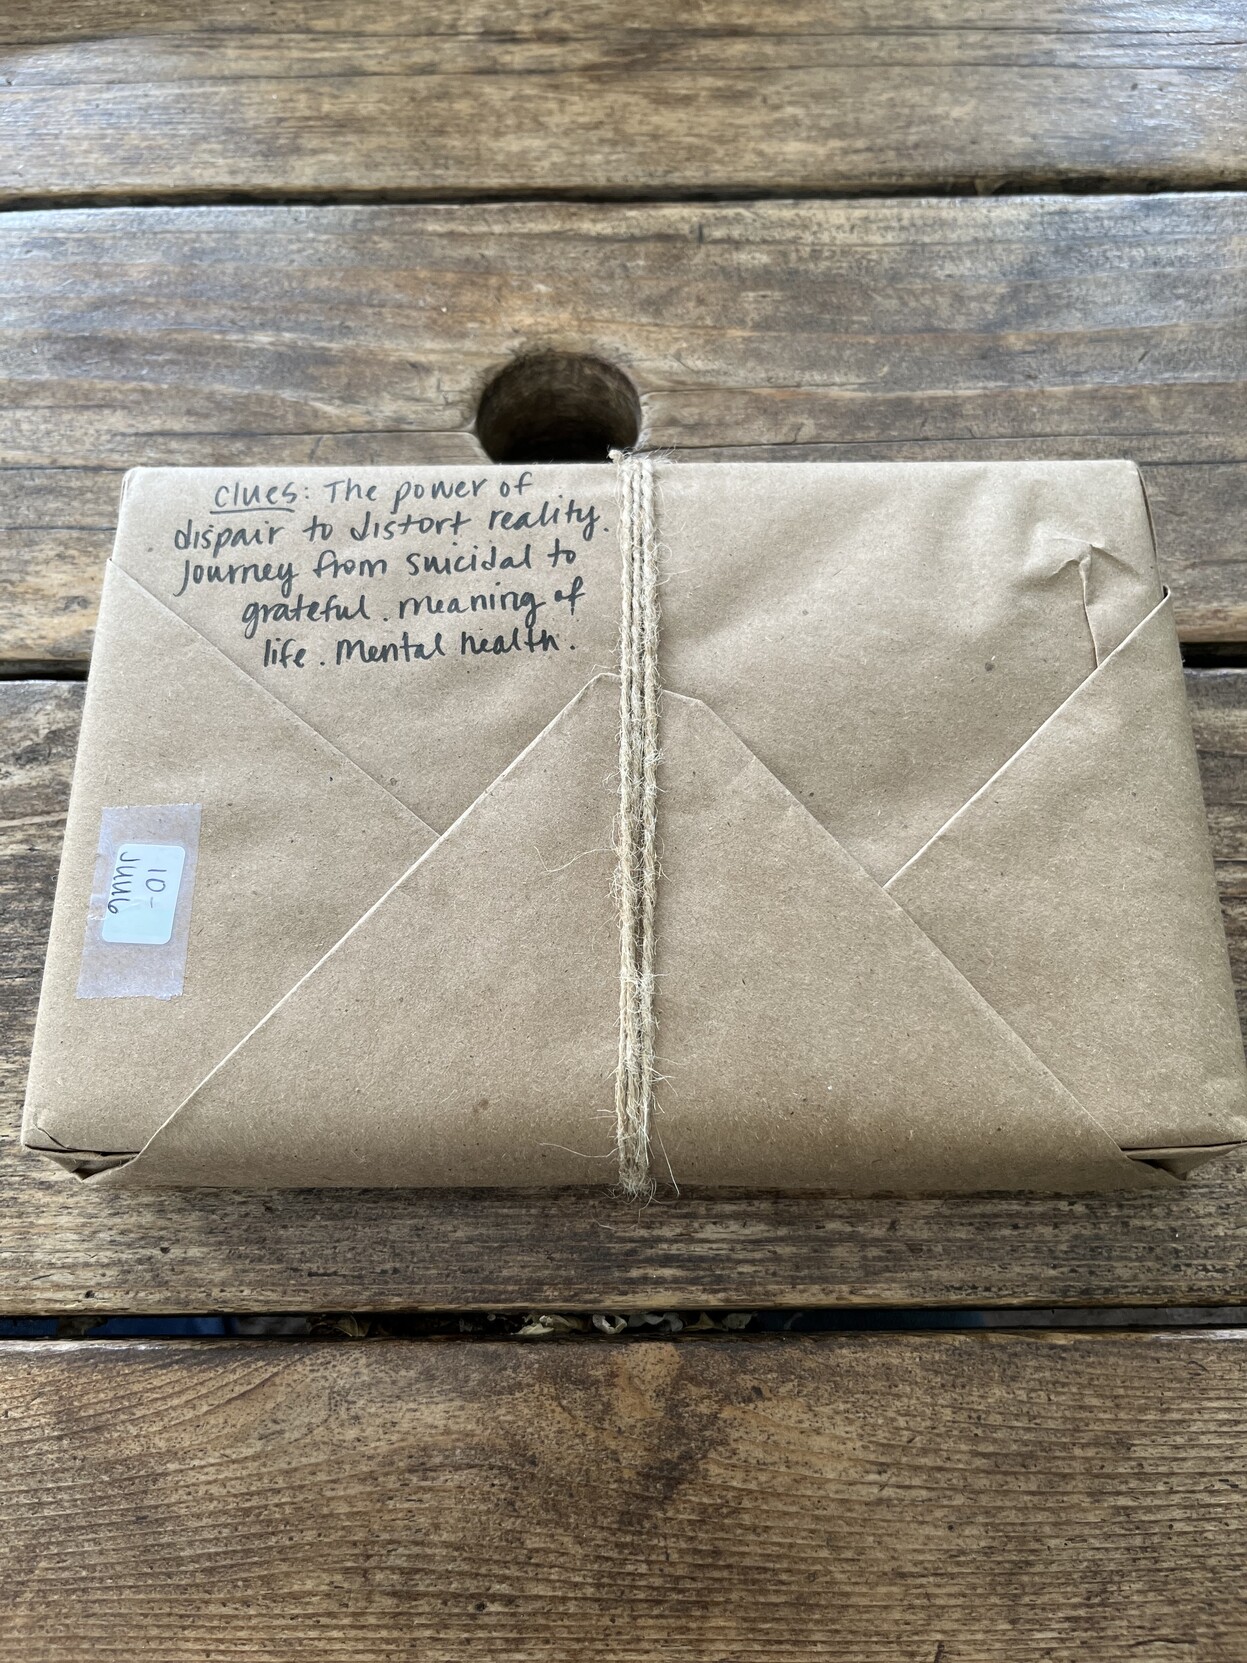 clues: The power of
dispair to distort reality.
Journey from suicidal to
grateful. meaning of
life. Mental health.
10-